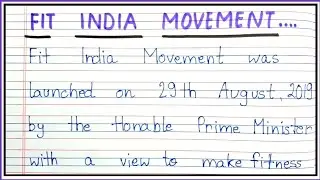 FIT INDIA MOVEMENT....
Fit India Movement was
launched on 29th August, 2019
by the Honable Prime Minister
with a view to make fitness